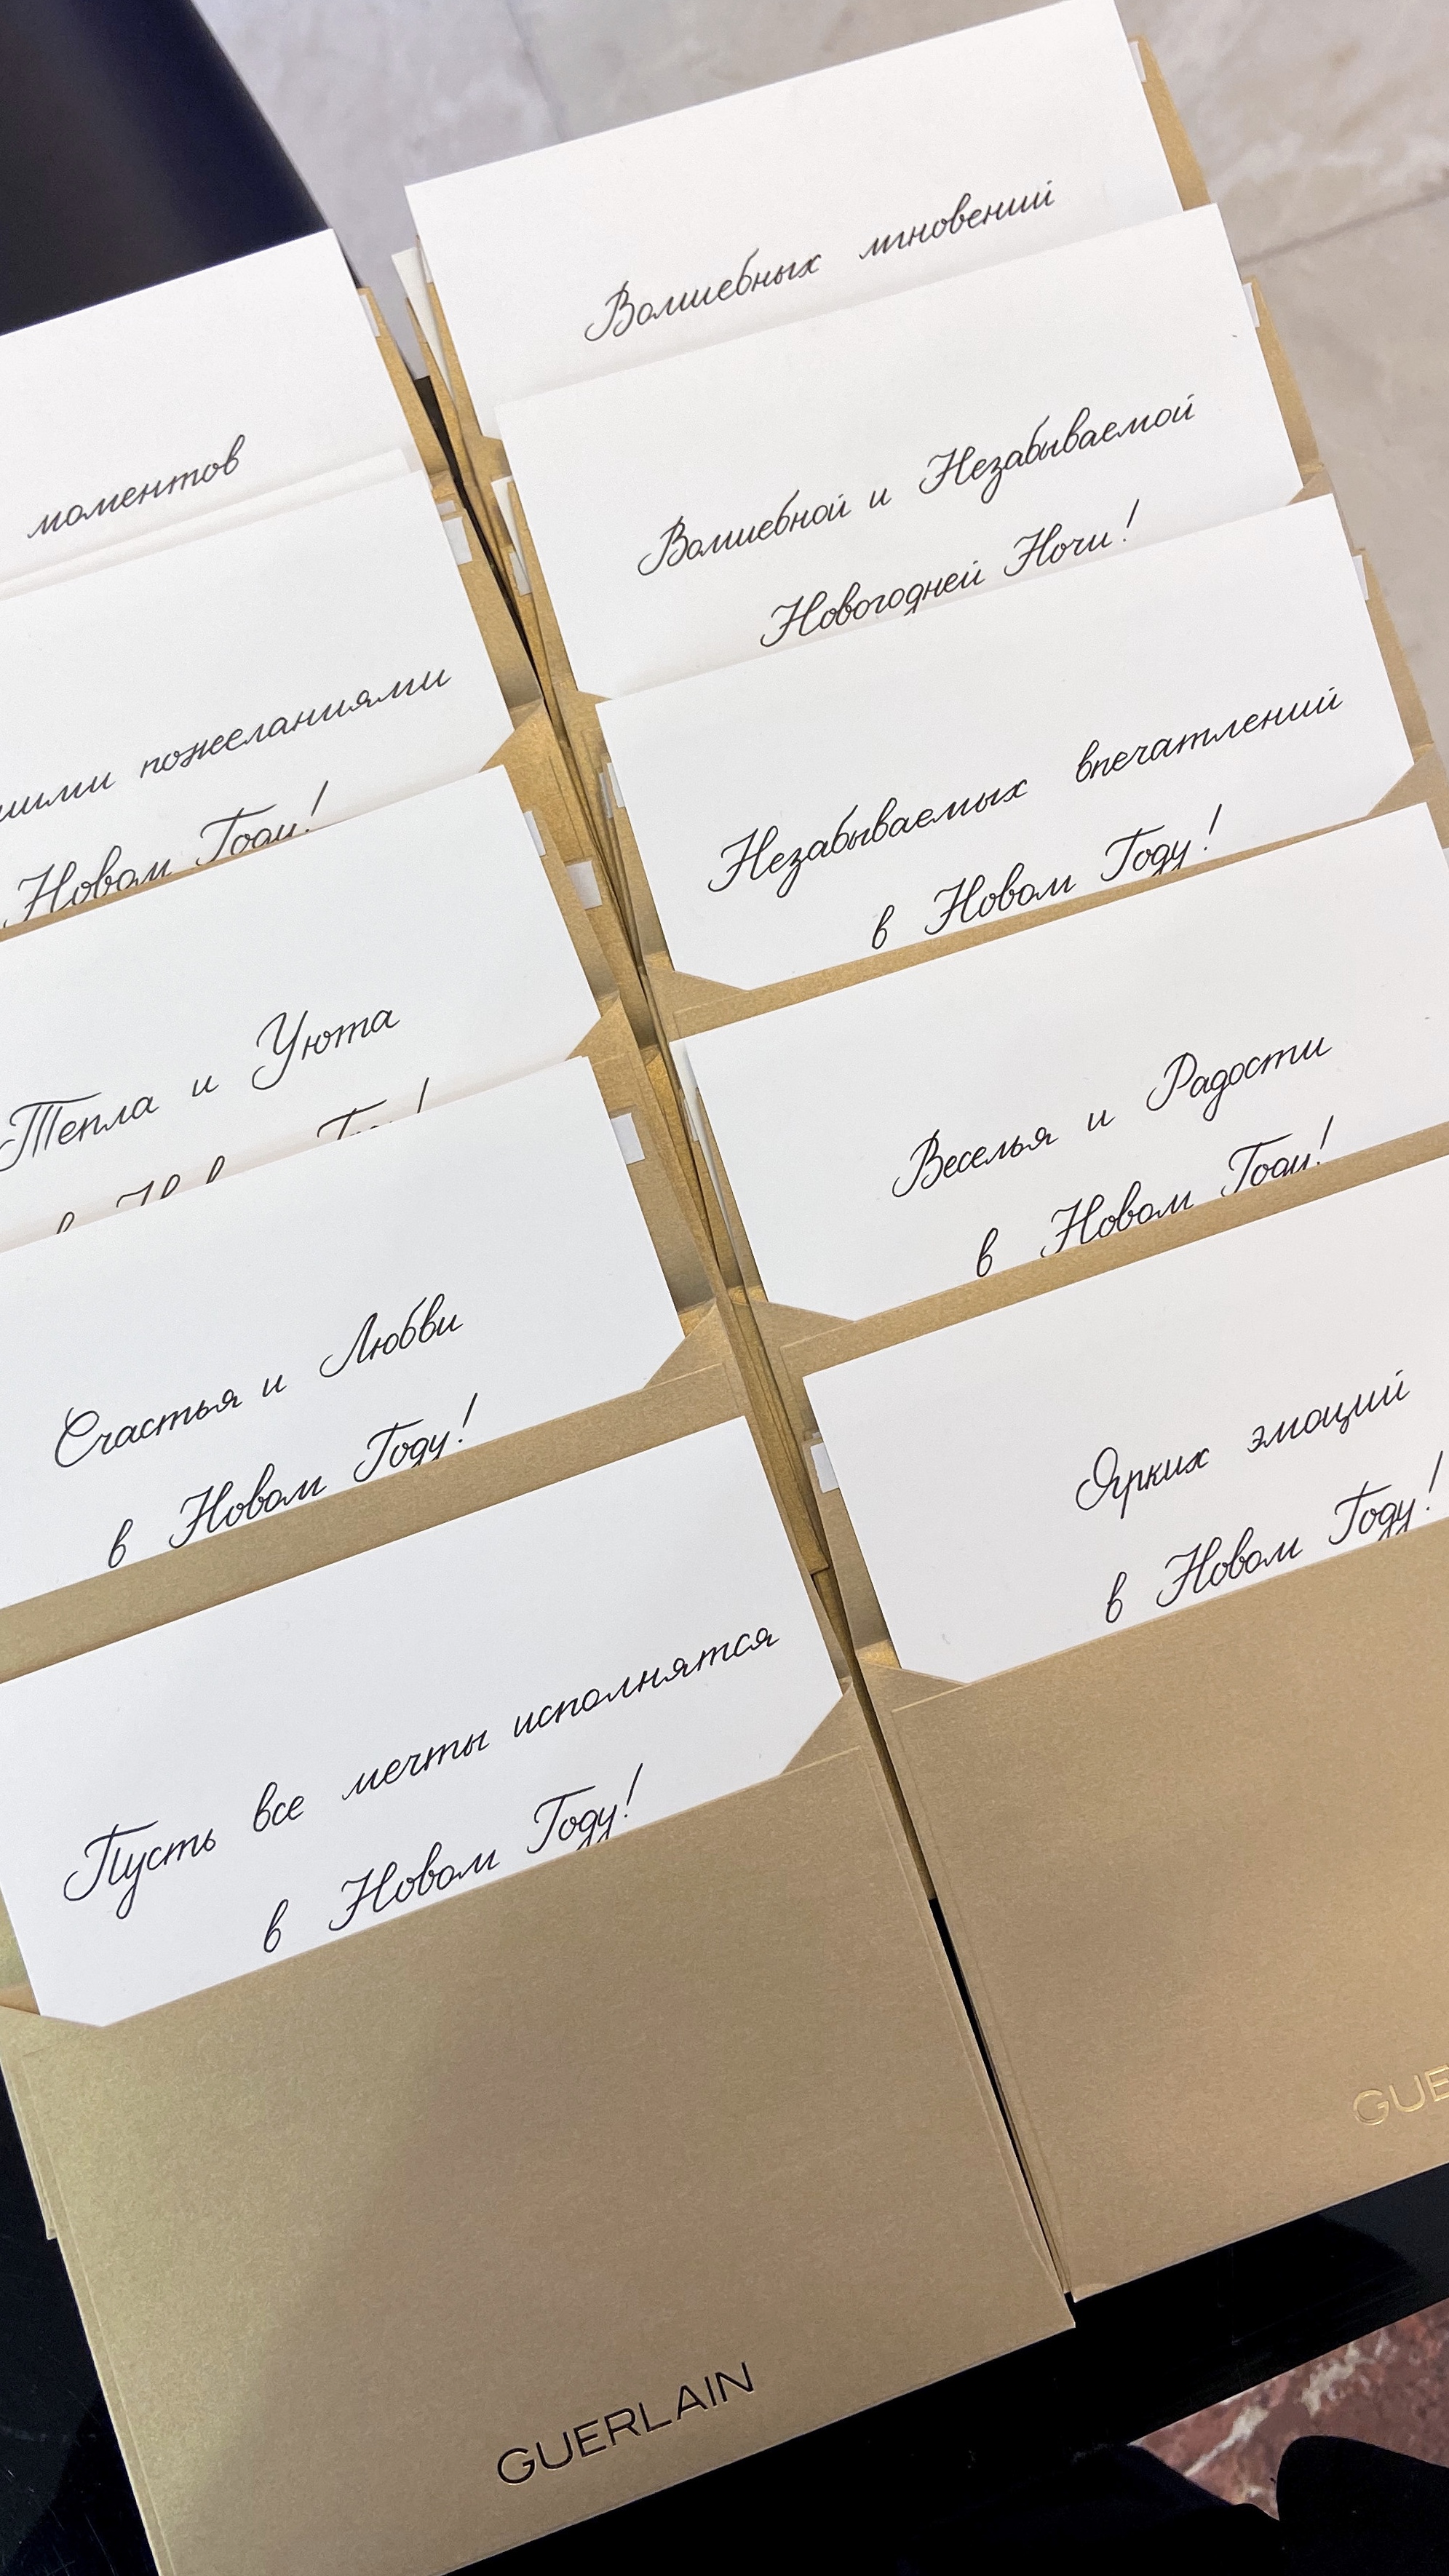 моментов
пожеланиями
Новом Году!
Тепла и Уюта
Счастья и Любви
в Новом Году!
Пусть все мечты исполнятся
в Новом Году!
GUERLAIN
Волшебных мгновений
Волшебной и Незабываемой
Новогодней Ночи!
Незабываемых впечатлений
в Новом Году!
Веселья и Радости
в Новом Году!
Ярких эмоций
в Новом Году!
GUE